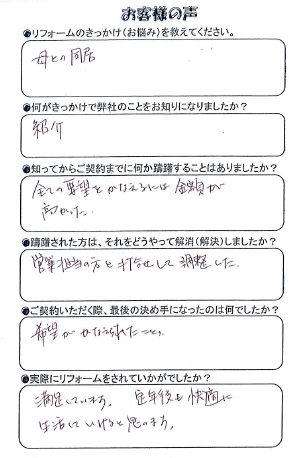 お客様の声
●リフォームのきっかけ(お悩み)を教えてください。
母との同居
●何がきっかけで弊社のことをお知りになりましたか?
紹介
●知ってからご契約までに何か躊躇することはありましたか?
全ての要望をかなえるには金額が
高かった。
●躊躇された方は、それをどうやって解消(解決)しましたか?
営業担当の方と打合せして調整した。
●ご契約いただく際、最後の決め手になったのは何でしたか?
希望がかなえられたこと。
●実際にリフォームをされていかがでしたか?
満足しています。定年後も快適に
生活していけると思います。